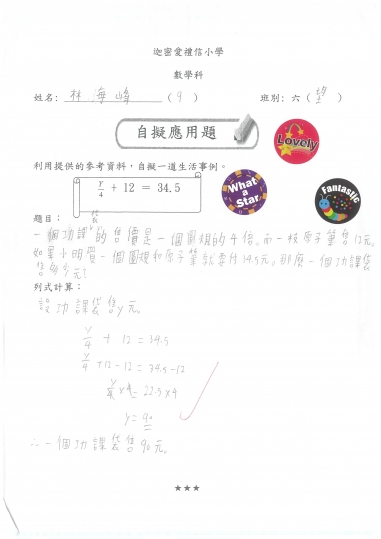 迦密愛禮信小學
數學科
姓名: 林海峰 (9) 班別: 六 (望)
自擬應用題
Lovely
利用提供的參考資料，自擬一道生活事例。
y/4 + 12 = 34.5
What a Star
Fantastic
題目：
一個功課袋的售價是一個圓規的4倍。而一枝原子筆售12元。
如果小明買一個圓規和原子筆就要付34.5元。那麼一個功課袋
售多少元?
列式計算：
設功課袋售y元。
y/4 + 12 = 34.5
y/4 + 12 - 12 = 34.5 - 12
y/4 × 4 = 22.5 × 4
y = 90
∴ 一個功課袋售90元。
★★★